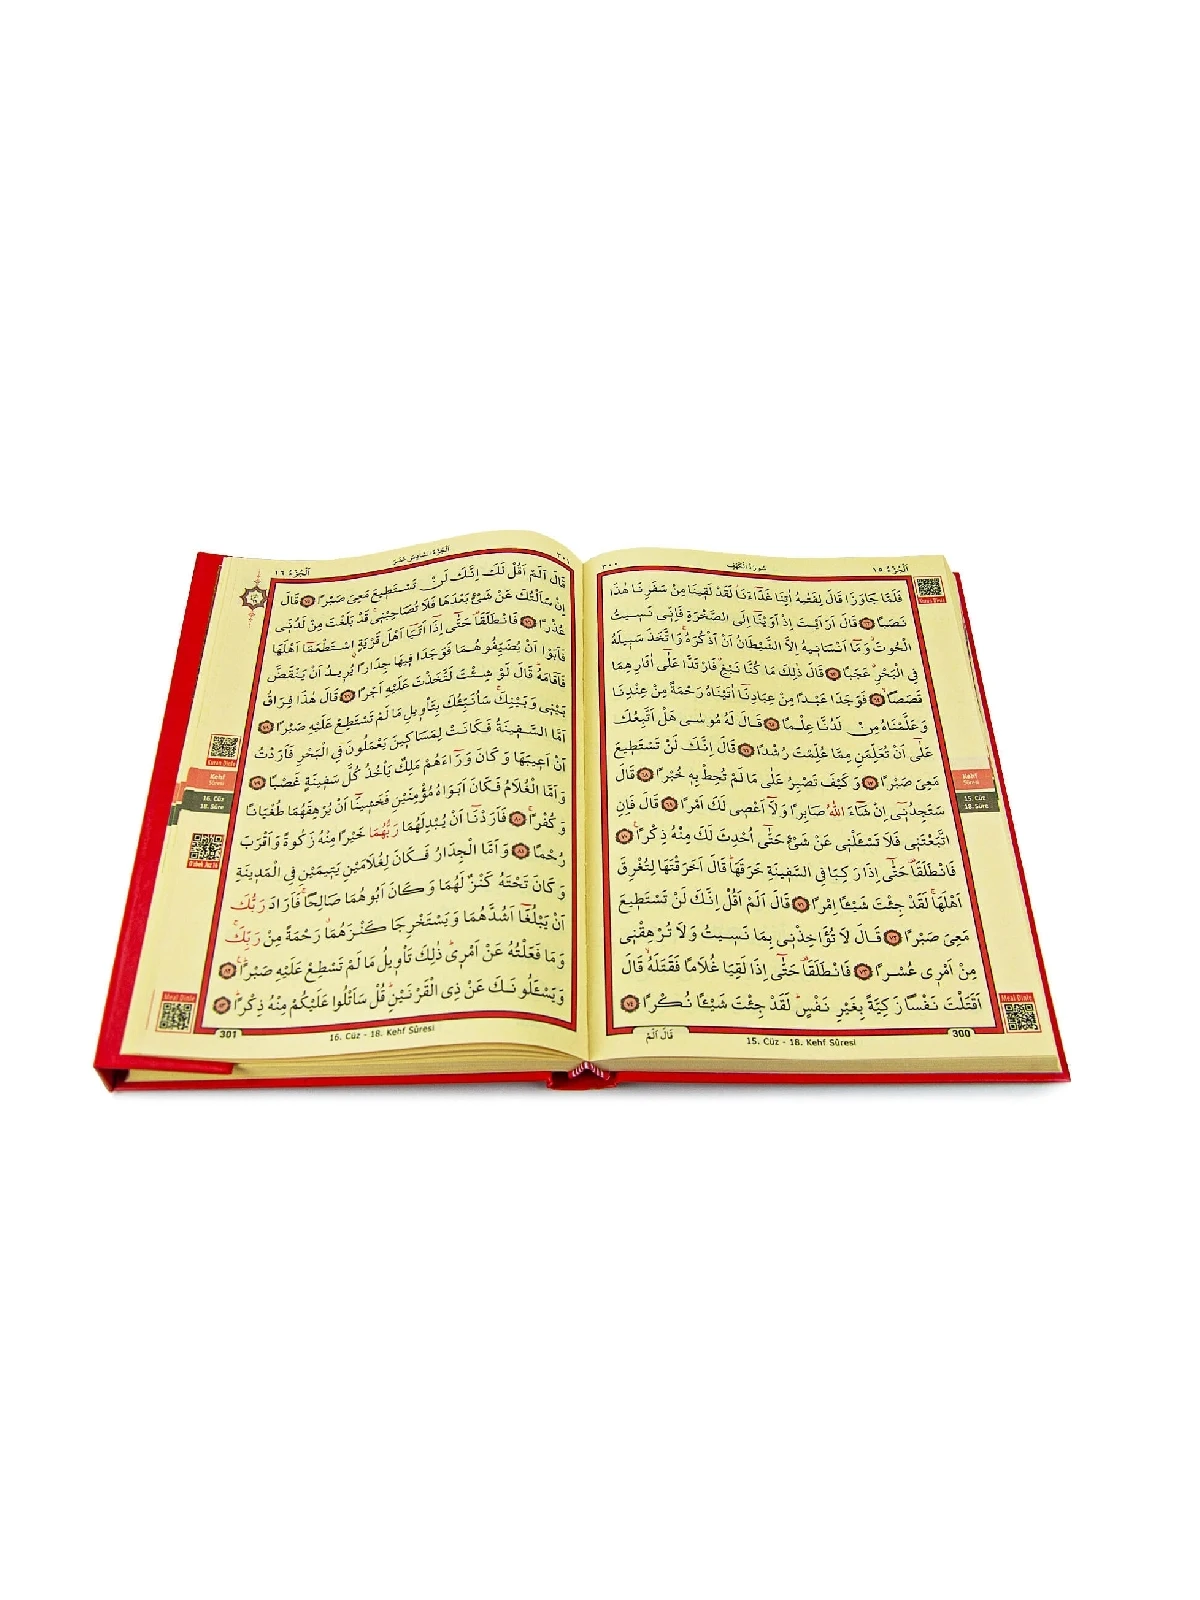 الجزء ١٥
سورة الكهف
٣٠٠
فَلَمَّا جَاوَزَا قَالَ لِفَتٰيهُ اٰتِنَا غَدَٓاءَنَاۘ لَقَدْ لَقٖينَا مِنْ سَفَرِنَا هٰذَا
نَصَبًا ﴿٦٢﴾ قَالَ اَرَاَيْتَ اِذْ اَوَيْنَٓا اِلَى الصَّخْرَةِ فَاِنّٖي نَسٖيتُ
الْحُوتَۘ وَمَٓا اَنْسَانٖيهُ اِلَّا الشَّيْطَانُ اَنْ اَذْكُرَهُۚ وَاتَّخَذَ سَبٖيلَهُ
فِي الْبَحْرِۗ عَجَبًا ﴿٦٣﴾ قَالَ ذٰلِكَ مَا كُنَّا نَبْغِۗ فَارْتَدَّا عَلٰٓى اٰثَارِهِمَا
قَصَصًا ﴿٦٤﴾ فَوَجَدَا عَبْدًا مِنْ عِبَادِنَٓا اٰتَيْنَاهُ رَحْمَةً مِنْ عِنْدِنَا
وَعَلَّمْنَاهُ مِنْ لَدُنَّا عِلْمًا ﴿٦٥﴾ قَالَ لَهُ مُوسٰى هَلْ اَتَّبِعُكَ
عَلٰٓى اَنْ تُعَلِّمَنِ مِمَّا عُلِّمْتَ رُشْدًا ﴿٦٦﴾ قَالَ اِنَّكَ لَنْ تَسْتَطٖيعَ
مَعِيَ صَبْرًا ﴿٦٧﴾ وَكَيْفَ تَصْبِرُ عَلٰى مَا لَمْ تُحِطْ بِهٖ خُبْرًا ﴿٦٨﴾ قَالَ
سَتَجِدُنٖٓي اِنْ شَٓاءَ اللّٰهُ صَابِرًا وَلَٓا اَعْصٖي لَكَ اَمْرًا ﴿٦٩﴾ قَالَ فَاِنِ
اتَّبَعْتَنٖي فَلَا تَسْـَٔلْنٖي عَنْ شَيْءٍ حَتّٰٓى اُحْدِثَ لَكَ مِنْهُ ذِكْرًا ﴿٧٠﴾
فَانْطَلَقَاۗ حَتّٰٓى اِذَا رَكِبَا فِي السَّفٖينَةِ خَرَقَهَاۗ قَالَ اَخَرَقْتَهَا لِتُغْرِقَ
اَهْلَهَاۚ لَقَدْ جِئْتَ شَيْـًٔا اِمْرًا ﴿٧١﴾ قَالَ اَلَمْ اَقُلْ اِنَّكَ لَنْ تَسْتَطٖيعَ
مَعِيَ صَبْرًا ﴿٧٢﴾ قَالَ لَا تُؤَاخِذْنٖي بِمَا نَسٖيتُ وَلَا تُرْهِقْنٖي
مِنْ اَمْرٖي عُسْرًا ﴿٧٣﴾ فَانْطَلَقَاۗ حَتّٰٓى اِذَا لَقِيَا غُلَامًا فَقَتَلَهُۙ قَالَ
اَقَتَلْتَ نَفْسًا زَكِيَّةً بِغَيْرِ نَفْسٍۜ لَقَدْ جِئْتَ شَيْـًٔا نُكْرًا ﴿٧٤﴾
قَالَ اَلَمْ
15. Cüz - 18. Kehf Sûresi
300
Kuran Dinle
Kehf
Sûresi
15. Cüz
18. Sûre
Meal Dinle
٣٠١
الجزء السادس عشر
الجزء ١٦
قَالَ اَلَمْ اَقُلْ لَكَ اِنَّكَ لَنْ تَسْتَطٖيعَ مَعِيَ صَبْرًا ﴿٧٥﴾ قَالَ
اِنْ سَاَلْتُكَ عَنْ شَيْءٍ بَعْدَهَا فَلَا تُصَاحِبْنٖيۚ قَدْ بَلَغْتَ مِنْ لَدُنّٖي
عُذْرًا ﴿٧٦﴾ فَانْطَلَقَاۗ حَتّٰٓى اِذَٓا اَتَيَٓا اَهْلَ قَرْيَةٍۨ اسْتَطْعَمَٓا اَهْلَهَا
فَاَبَوْا اَنْ يُضَيِّفُوهُمَا فَوَجَدَا فٖيهَا جِدَارًا يُرٖيدُ اَنْ يَنْقَضَّ
فَاَقَامَهُۜ قَالَ لَوْ شِئْتَ لَتَّخَذْتَ عَلَيْهِ اَجْرًا ﴿٧٧﴾ قَالَ هٰذَا فِرَاقُ
بَيْنٖي وَبَيْنِكَۚ سَاُنَبِّئُكَ بِتَأْوٖيلِ مَا لَمْ تَسْتَطِعْ عَلَيْهِ صَبْرًا ﴿٧٨﴾
اَمَّا السَّفٖينَةُ فَكَانَتْ لِمَسَاكٖينَ يَعْمَلُونَ فِي الْبَحْرِ فَاَرَدْتُ
اَنْ اَعٖيبَهَا وَكَانَ وَرَٓاءَهُمْ مَلِكٌ يَأْخُذُ كُلَّ سَفٖينَةٍ غَصْبًا ﴿٧٩﴾
وَاَمَّا الْغُلَامُ فَكَانَ اَبَوَاهُ مُؤْمِنَيْنِ فَخَشٖينَٓا اَنْ يُرْهِقَهُمَا طُغْيَانًا
وَكُفْرًاۚ ﴿٨٠﴾ فَاَرَدْنَٓا اَنْ يُبْدِلَهُمَا رَبُّهُمَا خَيْرًا مِنْهُ زَكٰوةً وَاَقْرَبَ
رُحْمًا ﴿٨١﴾ وَاَمَّا الْجِدَارُ فَكَانَ لِغُلَامَيْنِ يَتٖيمَيْنِ فِي الْمَدٖينَةِ
وَكَانَ تَحْتَهُ كَنْزٌ لَهُمَا وَكَانَ اَبُوهُمَا صَالِحًاۚ فَاَرَادَ رَبُّكَ
اَنْ يَبْلُغَٓا اَشُدَّهُمَا وَيَسْتَخْرِجَا كَنْزَهُمَاۗ رَحْمَةً مِنْ رَبِّكَۚ
وَمَا فَعَلْتُهُ عَنْ اَمْرٖيۜ ذٰلِكَ تَأْوٖيلُ مَا لَمْ تَسْطِعْ عَلَيْهِ صَبْرًاۜ ﴿٨٢﴾
وَيَسْـَٔلُونَكَ عَنْ ذِي الْقَرْنَيْنِۜ قُلْ سَاَتْلُوا عَلَيْكُمْ مِنْهُ ذِكْرًاۜ ﴿٨٣﴾
301
16. Cüz - 18. Kehf Sûresi
Kuran Dinle
Kehf
Sûresi
16. Cüz
18. Sûre
Meal Dinle